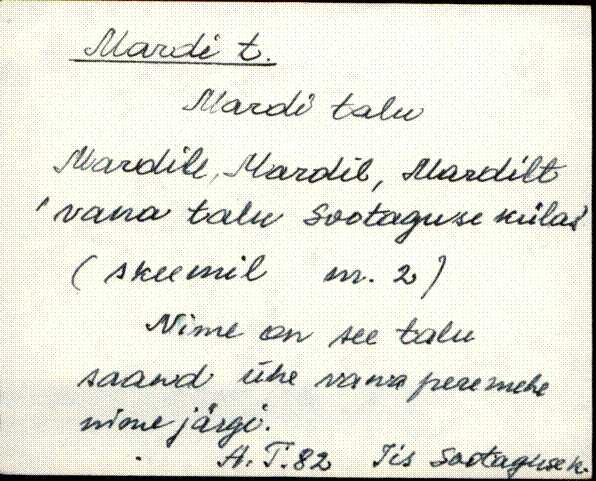 Mardi t.
Mardi talu
Mardile, Mardil, Mardilt
'vana talu Sootaguse külas'
(skeemil nr. 2)
Nime on see talu
saand ühe vana peremehe
nime järgi.
A. T. 82 Iis Sootaguse k.